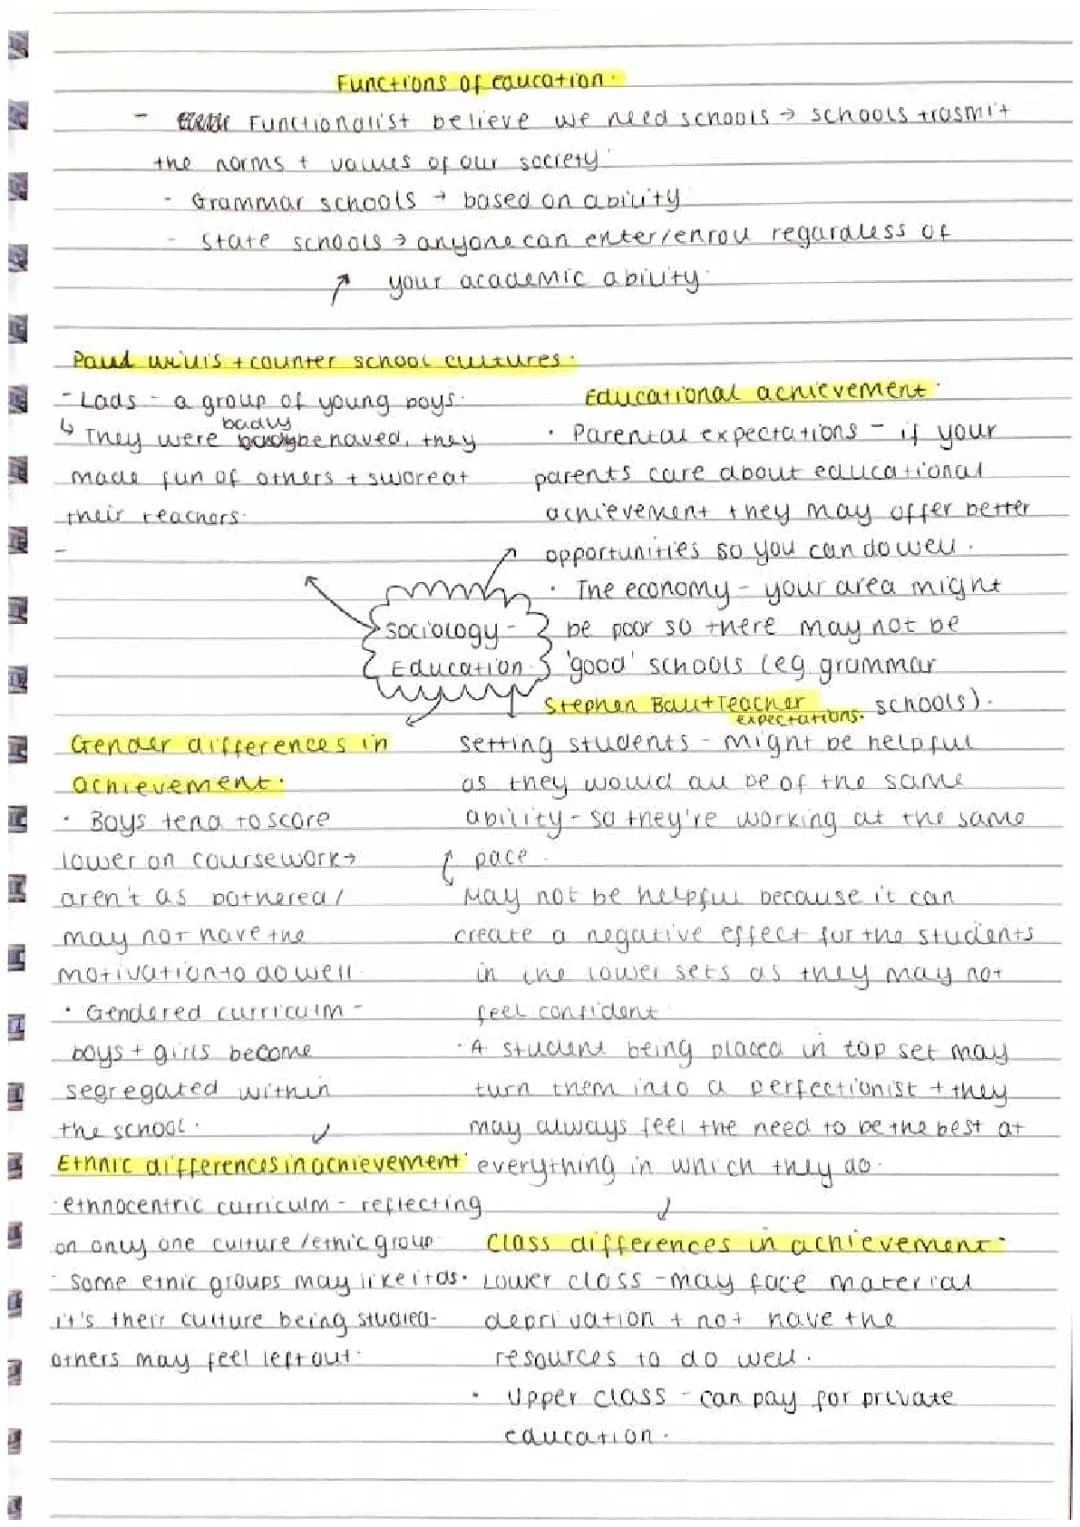 Functions of education.
- Functionalist believe we need schools → schools trasmit
the norms + values of our society.
- Grammar schools → based on ability
- State schools → anyone can enter/enroll regardless of
your academic ability.
Paul Willis + counter school cultures.
- Lads - a group of young boys.
↳ They were badly behaved, they
made fun of others + swore at
their teachers.
-
Educational achievement.
• Parental expectations - if your
parents care about educational
achievement they may offer better
opportunities so you can do well.
• The economy - your area might
be poor so there may not be
'good' schools (eg. grammar
schools).
Sociology -
Education.
Stephen Ball + Teacher
expectations.
Setting students - might be helpful
as they would all be of the same
ability - so they're working at the same
pace.
May not be helpful because it can
create a negative effect for the students
in the lower sets as they may not
feel confident
• A student being placed in top set may
turn them into a perfectionist + they
may always feel the need to be the best at
everything in which they do.
Gender differences in
achievement.
• Boys tend to score
lower on coursework →
aren't as bothered /
may not have the
motivation to do well.
• Gendered curriculm -
boys + girls become
segregated within
the school.
Ethnic differences in achievement
• ethnocentric curriculm - reflecting
on only one culture / ethnic group
- Some etnic groups may like it as.
it's their culture being studied -
others may feel left out.
Class differences in achievement.
Lower class - may face material
deprivation + not have the
resources to do well.
• Upper class - can pay for private
education.